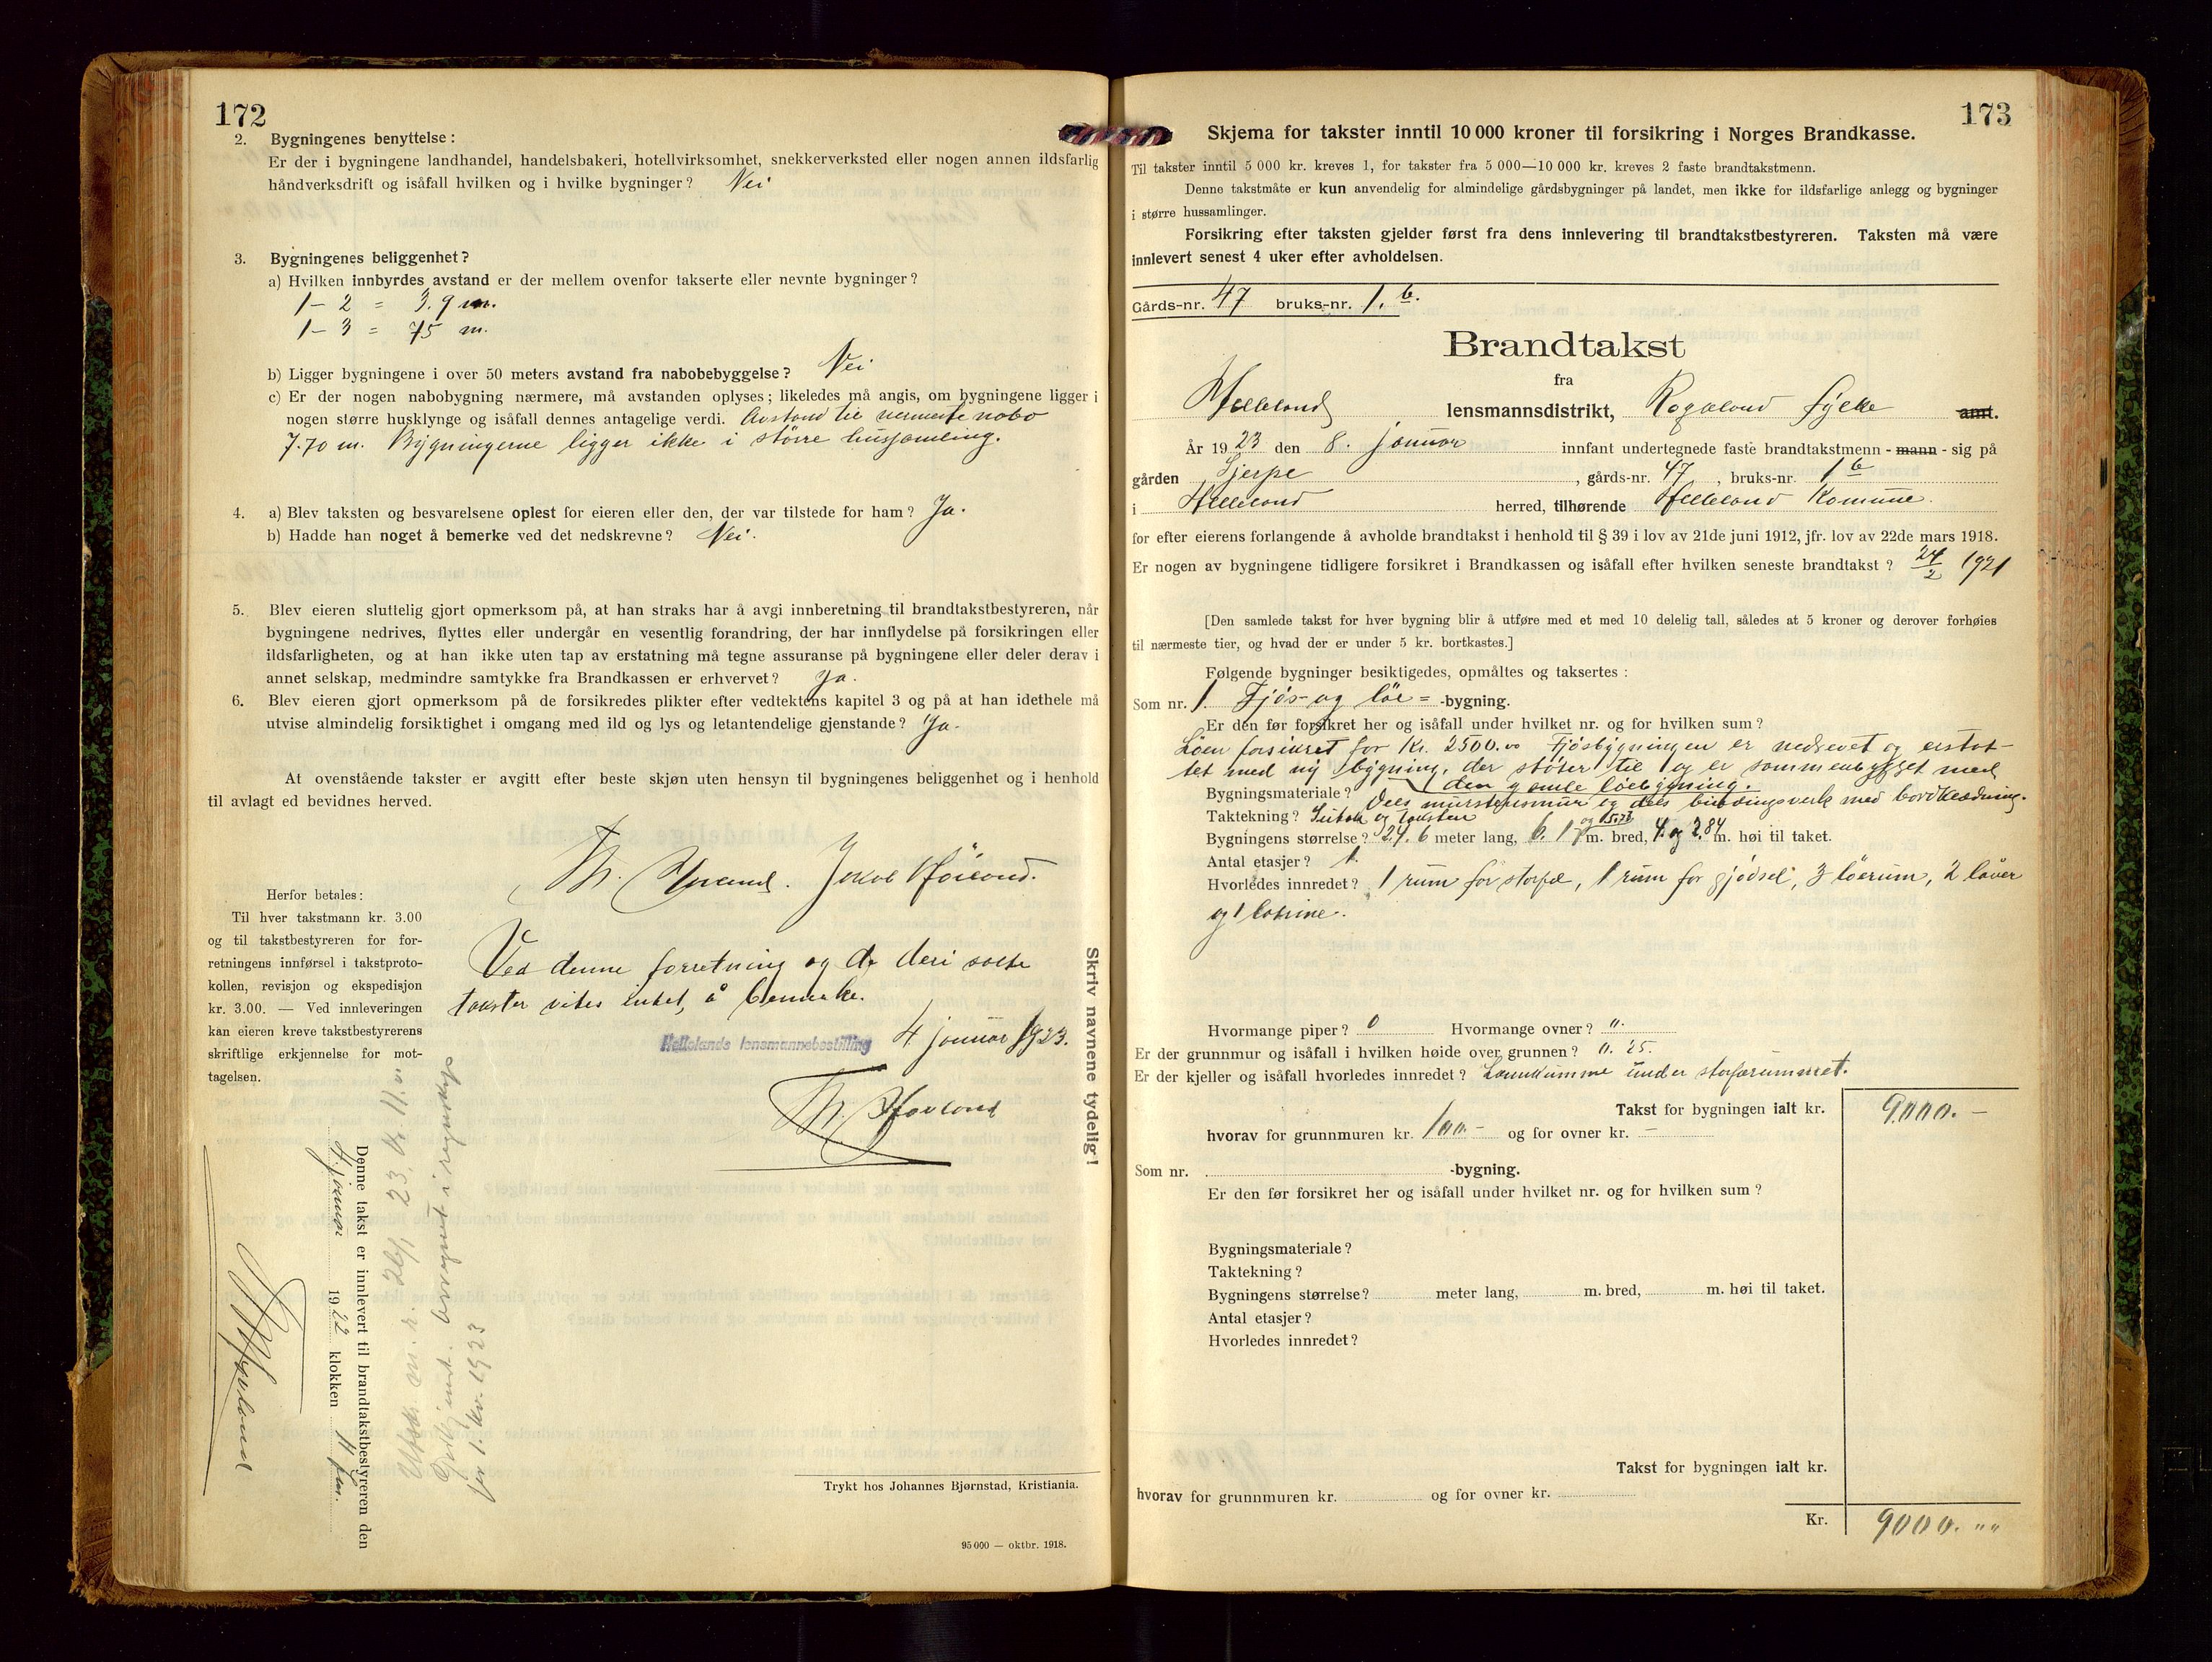 172
2. Bygningenes benyttelse:
Er der i bygningene landhandel, handelsbakeri, hotellvirksomhet, snekkerverksted eller nogen annen ildsfarlig
håndverksdrift og isåfall hvilken og i hvilke bygninger? Nei
3. Bygningenes beliggenhet?
a) Hvilken innbyrdes avstand er der mellem ovenfor takserte eller nevnte bygninger?
1 - 2 = 3.9 m.
1 - 3 = 75 m.
b) Ligger bygningene i over 50 meters avstand fra nabobebyggelse? Nei
c) Er der nogen nabobygning nærmere, må avstanden oplyses; likeledes må angis, om bygningene ligger i
nogen større husklynge og isåfall dennes antagelige verdi. Avstand til nermeste nabo
7.70 m. Bygningerne ligger ikke i större hussamling.
4. a) Blev taksten og besvarelsene oplest for eieren eller den, der var tilstede for ham? Ja.
b) Hadde han noget å bemerke ved det nedskrevne? Nei.
5. Blev eieren sluttelig gjort opmerksom på, at han straks har å avgi innberetning til brandtakstbestyreren, når
bygningene nedrives, flyttes eller undergår en vesentlig forandring, der har innflydelse på forsikringen eller
ildsfarligheten, og at han ikke uten tap av erstatning må tegne assuranse på bygningene eller deler derav i
annet selskap, medmindre samtykke fra Brandkassen er erhvervet? Ja.
6. Blev eieren gjort opmerksom på de forsikredes plikter efter vedtektens kapitel 3 og på at han idethele må
utvise almindelig forsiktighet i omgang med ild og lys og letantendelige gjenstande? Ja.
At ovenstående takster er avgitt efter beste skjøn uten hensyn til bygningenes beliggenhet og i henhold
til avlagt ed bevidnes herved.
Jakob Höiland.
Herfor betales:
Til hver takstmann kr. 3.00
og til takstbestyreren for for-
retningens innførsel i takstproto-
kollen, revisjon og ekspedisjon
kr. 3.00. — Ved innleveringen
kan eieren kreve takstbestyrerens
skriftlige erkjennelse for mot-
tagelsen.
Ved denne forretning og de deri satte
takster vites intet å bemerke.
Hellelands lensmannsbestilling 4 januar 1923.
Th. Hovland
Skriv navnene tydelig!
Denne takst er innlevert til brandtakstbestyreren den
4 januar 1922 klokken 11 fm.
Utfærd. m. n. 26/1 23. Kr. 11.00
Godkjent. Avregnet i regnskap
for 1. kv. 1923
Trykt hos Johannes Bjørnstad, Kristiania.
95 000 — oktbr. 1918.
173
Skjema for takster inntil 10 000 kroner til forsikring i Norges Brandkasse.
Til takster inntil 5 000 kr. kreves 1, for takster fra 5 000—10 000 kr. kreves 2 faste brandtakstmenn.
Denne takstmåte er kun anvendelig for almindelige gårdsbygninger på landet, men ikke for ildsfarlige anlegg og bygninger
i større hussamlinger.
Forsikring efter taksten gjelder først fra dens innlevering til brandtakstbestyreren. Taksten må være
innlevert senest 4 uker efter avholdelsen.
Gårds-nr. 47 bruks-nr. 1.b.
Brandtakst
fra
Helleland lensmannsdistrikt, Rogaland fylke amt.
År 1923 den 8. januar innfant undertegnede faste brandtakstmenn - mann - sig på
gården Gjerpe, gårds-nr. 47, bruks-nr. 1 b
i Helleland herred, tilhørende Helleland Komune.
for efter eierens forlangende å avholde brandtakst i henhold til § 39 i lov av 21de juni 1912, jfr. lov av 22de mars 1918.
Er nogen av bygningene tidligere forsikret i Brandkassen og isåfall efter hvilken seneste brandtakst? 24/2 1921
[Den samlede takst for hver bygning blir å utføre med et med 10 delelig tall, således at 5 kroner og derover forhøies
til nærmeste tier, og hvad der er under 5 kr. bortkastes.]
Følgende bygninger besiktigedes, opmåltes og taksertes:
Som nr. 1. Fjös- og löe= -bygning.
Er den før forsikret her og isåfall under hvilket nr. og for hvilken sum?
Löen forsikret for Kr. 2500.00 Fjösbygningen er nedrevet og erstat-
tet med ny bygning, der støter til og er sammenbygget med
den gamle löebygning.
Bygningsmateriale? Dels murstensmur og dels bindingsverk med bordklædning.
Taktekning?
Bygningens størrelse? 24.6 meter lang, 6.17 og 15.73 m. bred, 4. og 2.84 m. høi til taket.
Antal etasjer? 1.
Hvorledes innredet? 1 rum for storfæ, 1 rum for gjödsel, 3 löerum, 2 låver
og 1 latrine.
Hvormange piper? 0 Hvormange ovner? ".
Er der grunnmur og isåfall i hvilken høide over grunnen? 0.25.
Er der kjeller og isåfall hvorledes innredet? Lannkumme under storfærummet.
Takst for bygningen ialt kr. 9000.-
hvorav for grunnmuren kr. 100.- og for ovner kr. -
Som nr. -bygning.
Er den før forsikret her og isåfall under hvilket nr. og for hvilken sum?
Bygningsmateriale?
Taktekning?
Bygningens størrelse? meter lang, m. bred, m. høi til taket.
Antal etasjer?
Hvorledes innredet?
Takst for bygningen ialt kr.
hvorav for grunnmuren kr. og for ovner kr.
Kr. 9000. ""